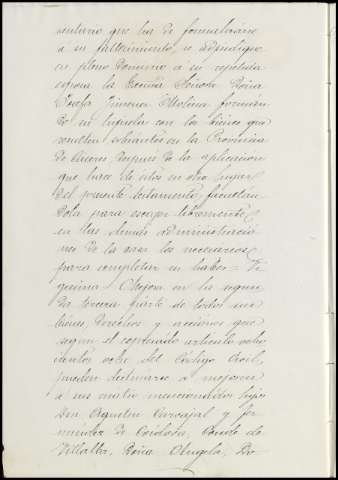 ventario que ha de formalizarse
á su fallecimiento, se adjudique
en pleno dominio á su repetida
esposa la Excma Señora Doña
Josefa Jimenez Molina forman
do su hijuela con los bienes que
resulten sobrantes en la Provincia
de Cáceres después de la aplicacion
que hace de estos en otro lugar
del presente testamento facultán
dola para escoger libremente
en las demás administracio
nes de la casa los necesarios
para completar su haber =
gesima: Mejora en la segun
da tercera parte de todos sus
bienes derechos y acciones que
segun el expresado artículo ocho
cientos ocho del Código Civil,
pueden destinarse a mejorar
á sus nietos mencionados hijos
Don Agustin Carvajal y Fer
nandez de Córdoba, Conde de
Villalba, Doña Angela, Do-